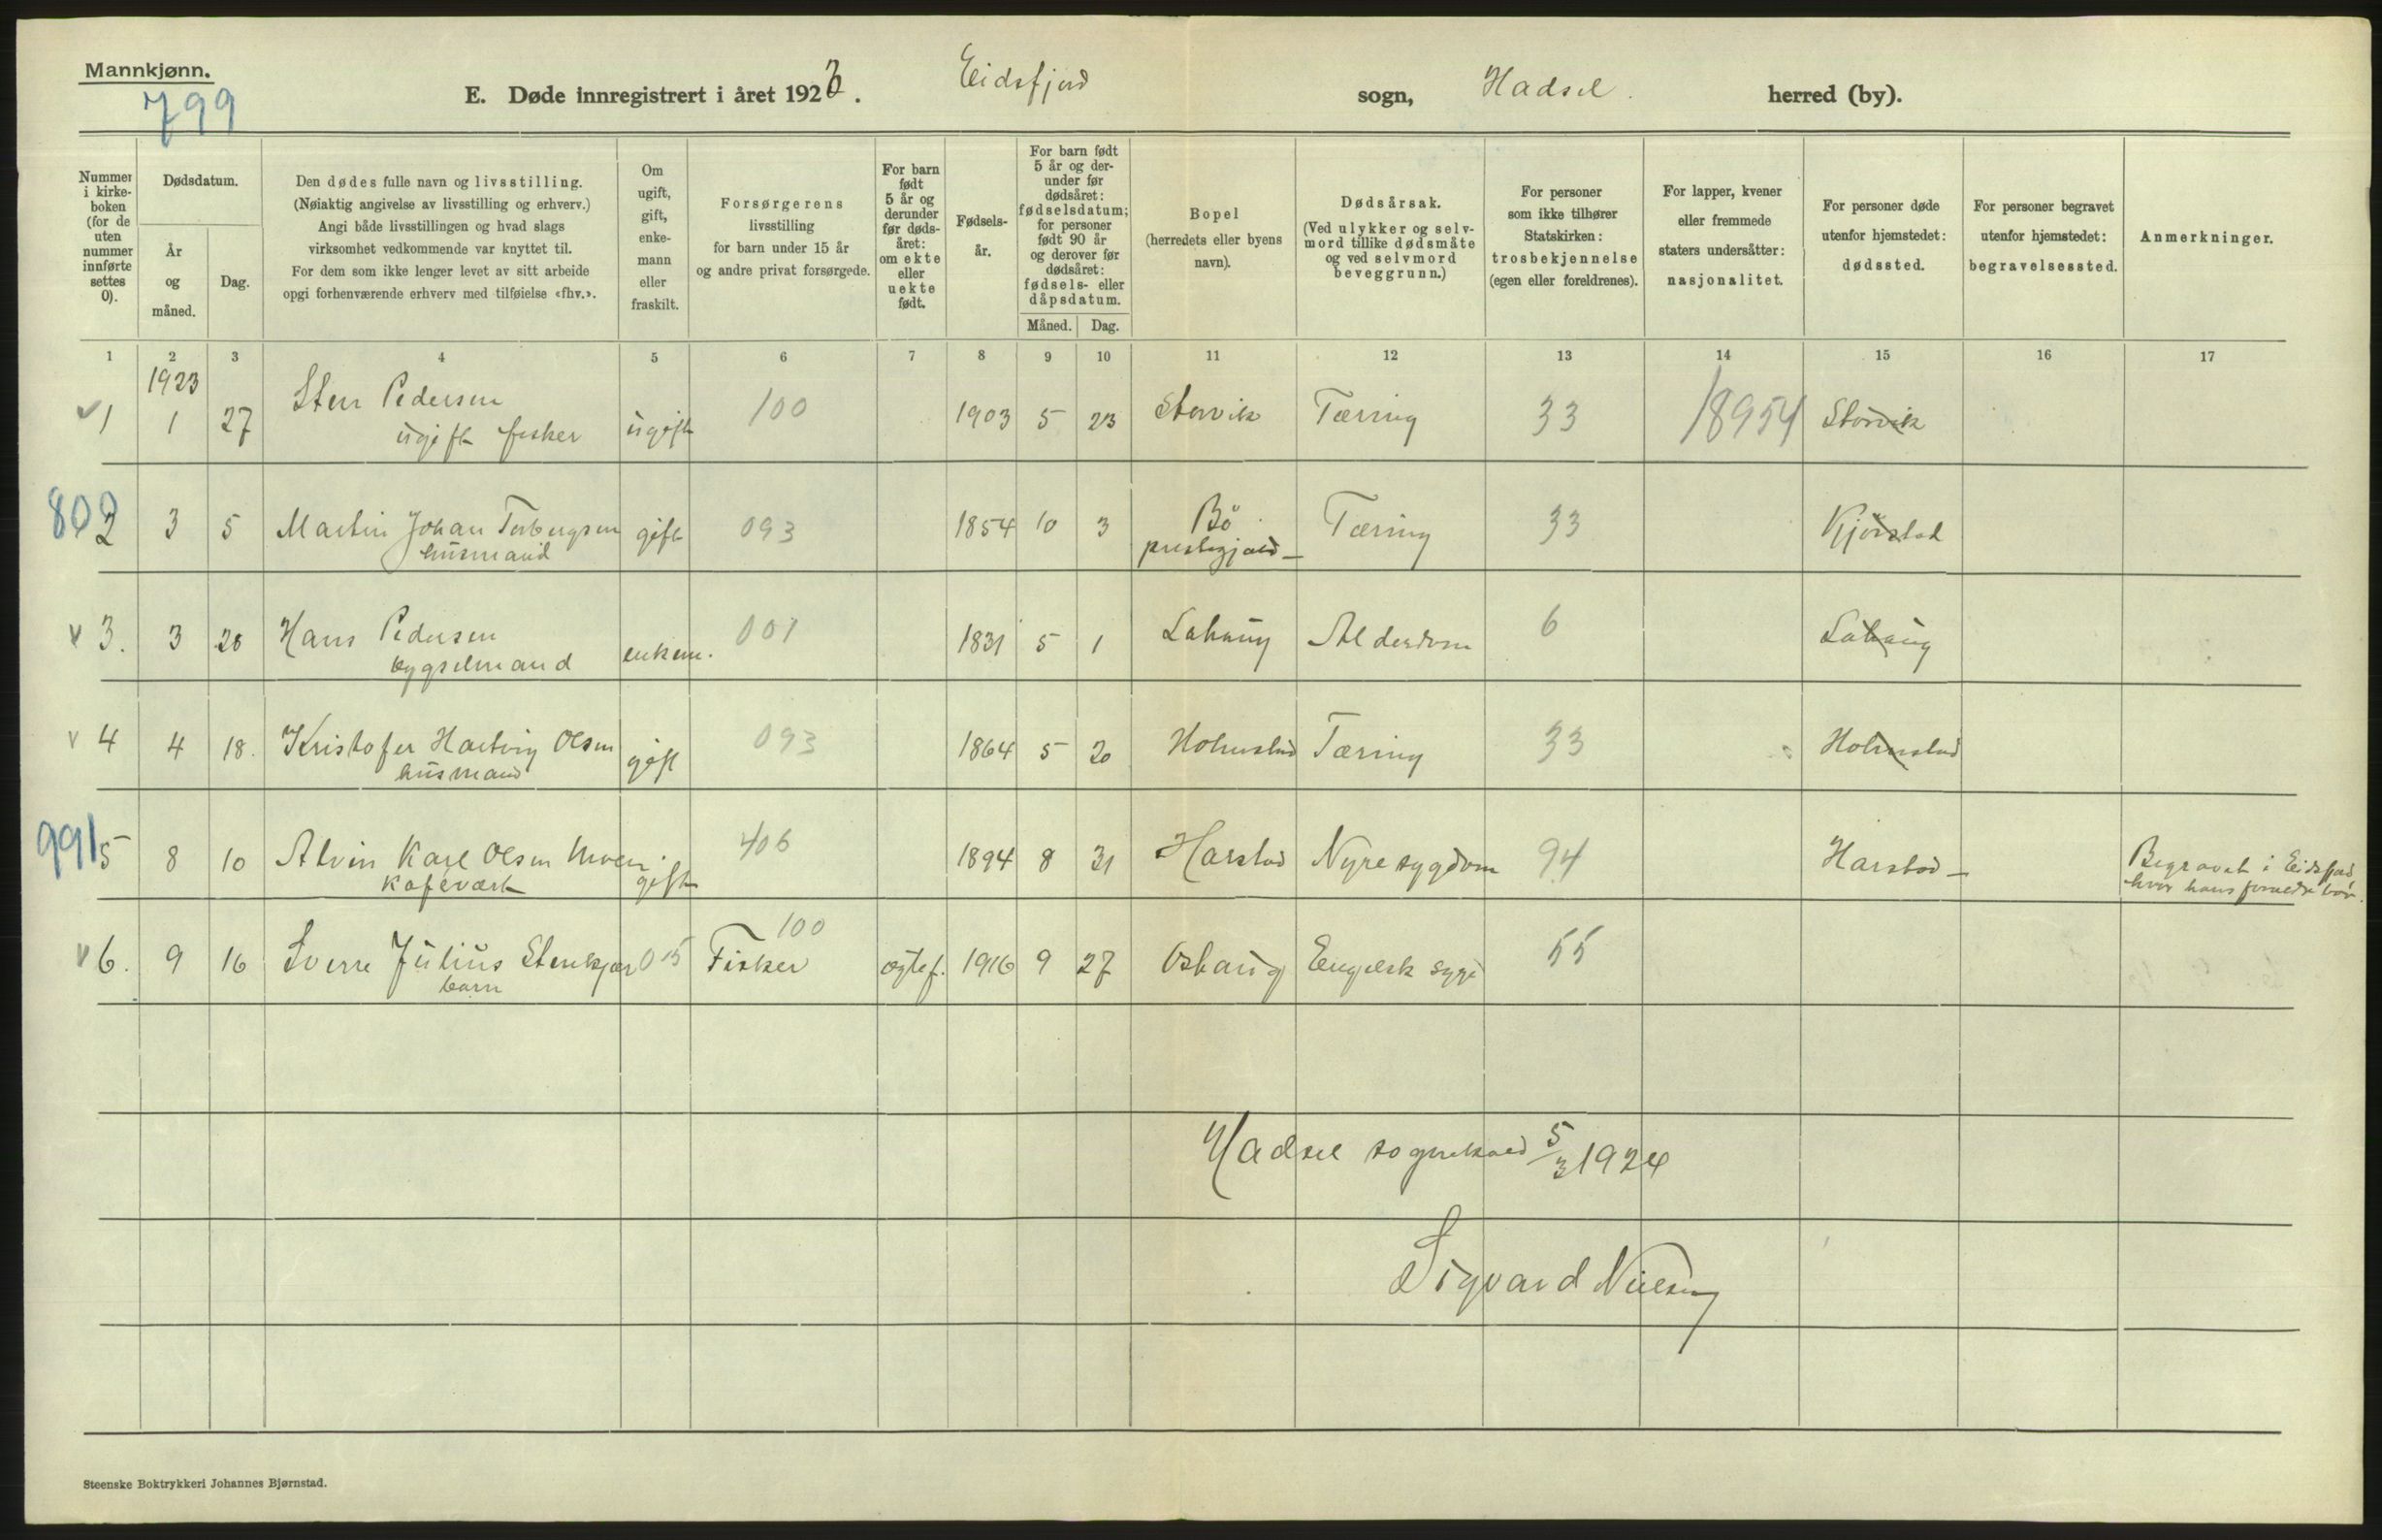 Mannkjønn.
799
E. Døde innregistrert i året 1923. Eidsfjord sogn, Hadsel. herred (by).
Nummer i kirke-boken (for de uten nummer innførte settes 0).
Dødsdatum.
År og måned.
Dag.
Den dødes fulle navn og livsstilling.
(Nøiaktig angivelse av livsstilling og erhverv.)
Angi både livsstillingen og hvad slags
virksomhet vedkommende var knyttet til.
For dem som ikke lenger levet av sitt arbeide
opgi forhenværende erhverv med tilføielse «fhv.».
Om ugift, gift, enke-mann eller fraskilt.
Forsørgerens
livsstilling
for barn under 15 år
og andre privat forsørgede.
For barn født 5 år og derunder før døds-året: om ekte eller uekte født.
Fødsels-år.
For barn født 5 år og der-under før dødsåret: fødselsdatum; for personer født 90 år og derover før dødsåret: fødsels- eller dåpsdatum.
Måned. Dag.
Bopel
(herredets eller byens
navn).
Dødsårsak.
(Ved ulykker og selv-
mord tillike dødsmåte
og ved selvmord
beveggrunn.)
For personer
som ikke tilhører
Statskirken:
trosbekjennelse
(egen eller foreldrenes).
For lapper, kvener
eller fremmede
staters undersåtter:
nasjonalitet.
For personer døde
utenfor hjemstedet:
dødssted.
For personer begravet
utenfor hjemstedet:
begravelsessted.
Anmerkninger.
1 2 3 4 5 6 7 8 9 10 11 12 13 14 15 16 17
1923
1 1 27 Sten Pedersen ugift 100 1903 5 23 Storvik Tæring 33 18954 Storvik
ugift fisker
802
2 3 5 Martin Johan Torbergsen gift 093 1854 10 3 Bö Tæring 33 Kjörstad
husmand prestegjæld
3. 3 26 Hans Pedersen enkem. 001 1831 5 1 Lahaug Alderdom 6 Lahaug
bygselmand
4 4 18. Kristofer Hartvig Olsen gift 093 1864 5 20 Holmstad Tæring 33 Holmstad
husmand
991
5 8 10 Alvin Karl Olsen Moen gift 406 1894 8 31 Harstad Nyresygdom 94 Harstad Begravet i Eidsfjord
kafévært hvor hans foreldre bor.
6. 9 16 Sverre Julius Stenkjær 015 Fisker 100 egtef. 1916 9 27 Oshaug Engelsk syge 55
barn
Hadsel sognekald 5/3 1924
Sigvard Nielsen
Steenske Boktrykkeri Johannes Bjørnstad.